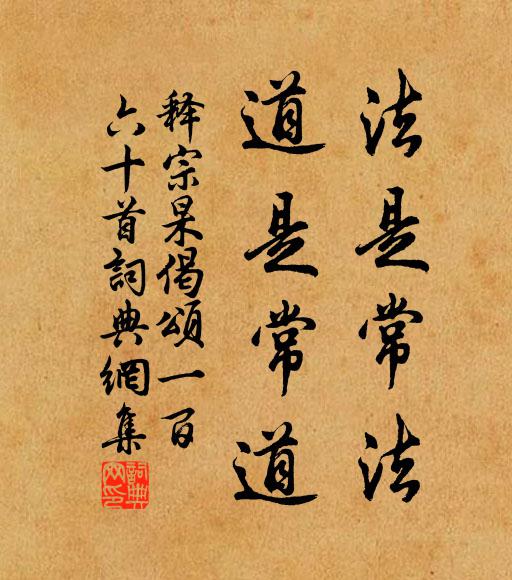 法是常法
道是常道
释宗杲偈頌一百
六十首詞典網集
詞典网印